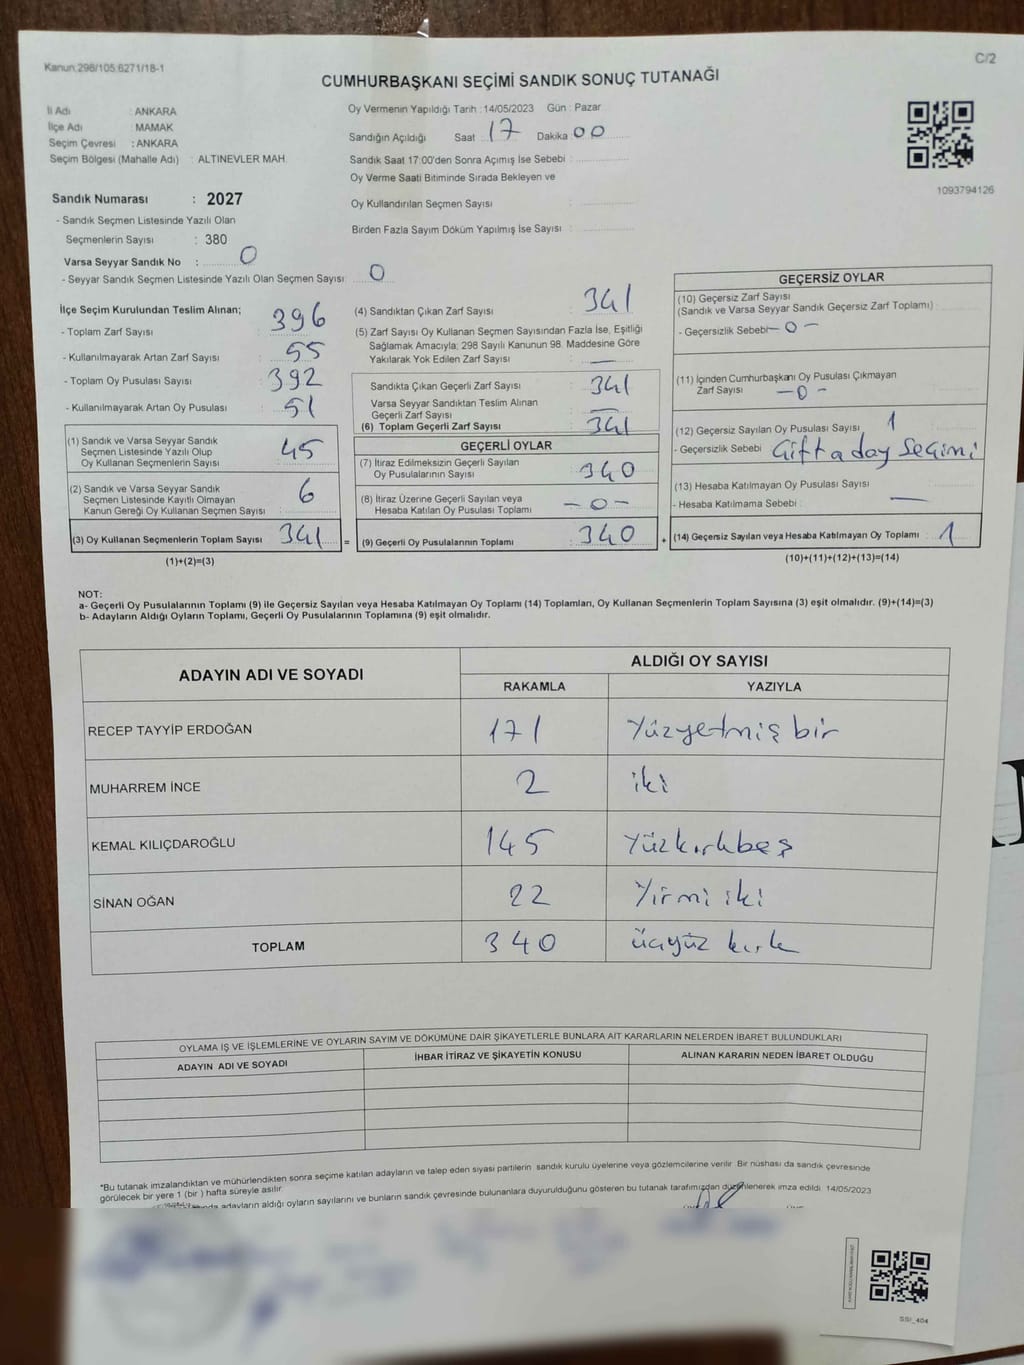 Kanun:298/105.6271/18-1
C/2
CUMHURBAŞKANI SEÇİMİ SANDIK SONUÇ TUTANAĞI
İl Adı : ANKARA
İlçe Adı : MAMAK
Seçim Çevresi : ANKARA
Seçim Bölgesi (Mahalle Adı) : ALTINEVLER MAH.
Oy Vermenin Yapıldığı Tarih : 14/05/2023 Gün : Pazar
Sandığın Açıldığı Saat : 17 Dakika : 00
Sandık Saat 17:00'den Sonra Açımış İse Sebebi :
Oy Verme Saati Bitiminde Sırada Bekleyen ve
Oy Kullandırılan Seçmen Sayısı :
Birden Fazla Sayım Döküm Yapılmış İse Sayısı :
1093794126
Sandık Numarası : 2027
- Sandık Seçmen Listesinde Yazılı Olan
Seçmenlerin Sayısı : 380
Varsa Seyyar Sandık No : 0
- Seyyar Sandık Seçmen Listesinde Yazılı Olan Seçmen Sayısı: 0
İlçe Seçim Kurulundan Teslim Alınan;
- Toplam Zarf Sayısı : 396
- Kullanılmayarak Artan Zarf Sayısı : 55
- Toplam Oy Pusulası Sayısı : 392
- Kullanılmayarak Artan Oy Pusulası : 51
(1) Sandık ve Varsa Seyyar Sandık
Seçmen Listesinde Yazılı Olup
Oy Kullanan Seçmenlerin Sayısı : 45
(2) Sandık ve Varsa Seyyar Sandık
Seçmen Listesinde Kayıtlı Olmayan
Kanun Gereği Oy Kullanan Seçmen Sayısı : 6
(3) Oy Kullanan Seçmenlerin Toplam Sayısı : 341 =
(1)+(2)=(3)
(4) Sandıktan Çıkan Zarf Sayısı : 341
(5) Zarf Sayısı Oy Kullanan Seçmen Sayısından Fazla İse, Eşitliği
Sağlamak Amacıyla; 298 Sayılı Kanunun 98. Maddesine Göre
Yakılarak Yok Edilen Zarf Sayısı : —
Sandıkta Çıkan Geçerli Zarf Sayısı : 341
Varsa Seyyar Sandıktan Teslim Alınan
Geçerli Zarf Sayısı : —
(6) Toplam Geçerli Zarf Sayısı : 341
GEÇERLİ OYLAR
(7) İtiraz Edilmeksizin Geçerli Sayılan
Oy Pusulalarının Sayısı : 340
(8) İtiraz Üzerine Geçerli Sayılan veya
Hesaba Katılan Oy Pusulası Toplamı : -0-
(9) Geçerli Oy Pusulalarının Toplamı : 340 +
GEÇERSİZ OYLAR
(10) Geçersiz Zarf Sayısı
(Sandık ve Varsa Seyyar Sandık Geçersiz Zarf Toplamı) :
- Geçersizlik Sebebi - 0 -
(11) İçinden Cumhurbaşkanı Oy Pusulası Çıkmayan
Zarf Sayısı - 0 -
(12) Geçersiz Sayılan Oy Pusulası Sayısı : 1
- Geçersizlik Sebebi : Çift aday Seçimi
(13) Hesaba Katılmayan Oy Pusulası Sayısı :
- Hesaba Katılmama Sebebi : —
(14) Geçersiz Sayılan veya Hesaba Katılmayan Oy Toplamı : 1
(10)+(11)+(12)+(13)=(14)
NOT:
a- Geçerli Oy Pusulalarının Toplamı (9) ile Geçersiz Sayılan veya Hesaba Katılmayan Oy Toplamı (14) Toplamları, Oy Kullanan Seçmenlerin Toplam Sayısına (3) eşit olmalıdır. (9)+(14)=(3)
b- Adayların Aldığı Oyların Toplamı, Geçerli Oy Pusulalarının Toplamına (9) eşit olmalıdır.
ADAYIN ADI VE SOYADI ALDIĞI OY SAYISI
RAKAMLA YAZIYLA
RECEP TAYYİP ERDOĞAN 171 Yüzyetmiş bir
MUHARREM İNCE 2 iki
KEMAL KILIÇDAROĞLU 145 Yüzkırkbeş
SİNAN OĞAN 22 Yirmi iki
TOPLAM 340 üçyüz kırk
OYLAMA İŞ VE İŞLEMLERİNE VE OYLARIN SAYIM VE DÖKÜMÜNE DAİR ŞİKAYETLERLE BUNLARA AİT KARARLARIN NELERDEN İBARET BULUNDUKLARI
ADAYIN ADI VE SOYADI İHBAR İTİRAZ VE ŞİKAYETİN KONUSU ALINAN KARARIN NEDEN İBARET OLDUĞU
*Bu tutanak imzalandıktan ve mühürlendikten sonra seçime katılan adayların ve talep eden siyasi partilerin sandık kurulu üyelerine veya gözlemcilerine verilir. Bir nüshası da sandık çevresinde
görülecek bir yere 1 (bir ) hafta süreyle asılır.
adayların aldığı oyların sayılarını ve bunların sandık çevresinde bulunanlara duyurulduğunu gösteren bu tutanak tarafımızdan düzenlenerek imza edildi. 14/05/2023
SSI_404